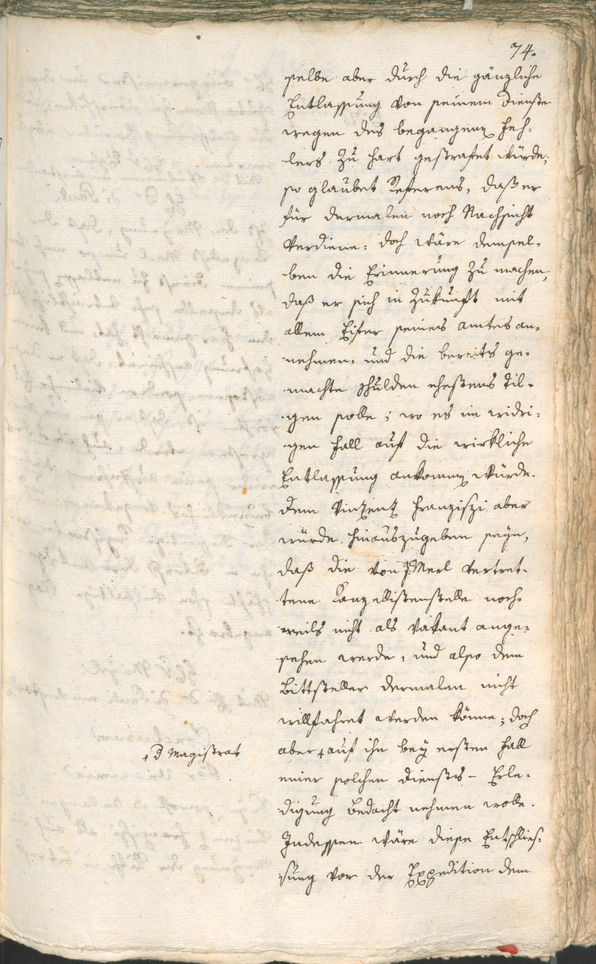 74.
selbe aber durch die gänzliche
Entlassung von seinem Dienste
wegen des begangenen Feh-
lers zu hart gestrafet würde,
so glaubet Referens, daß er
für dermalen noch Nachsicht
verdiene: doch wäre demsel-
ben die Erinnerung zu machen,
daß er sich in Zukunft mit
allem Eifer seines Amtes an-
nehmen, und die bereits ge-
machte Schulden ehestens til-
gen solle; wo es im widri-
gen Fall auf die wirkliche
Entlassung ankommen würde.
Dem Vinzenz Franziszi aber
würde hinauszugeben seyn,
daß die von Merl vertret-
tene Kanzellistenstelle noch-
weils nicht als vakant ange-
sehen werde, und also dem
Bittsteller dermalen nicht
willfahret werden könne; doch
aber + auf ihn bey ersten Fall
einer solchen Dienstes-Erle-
digung bedacht nehmen wolle.
Indessen wäre diese Entschlies-
sung vor der Expedition dem
+ D Magistrat